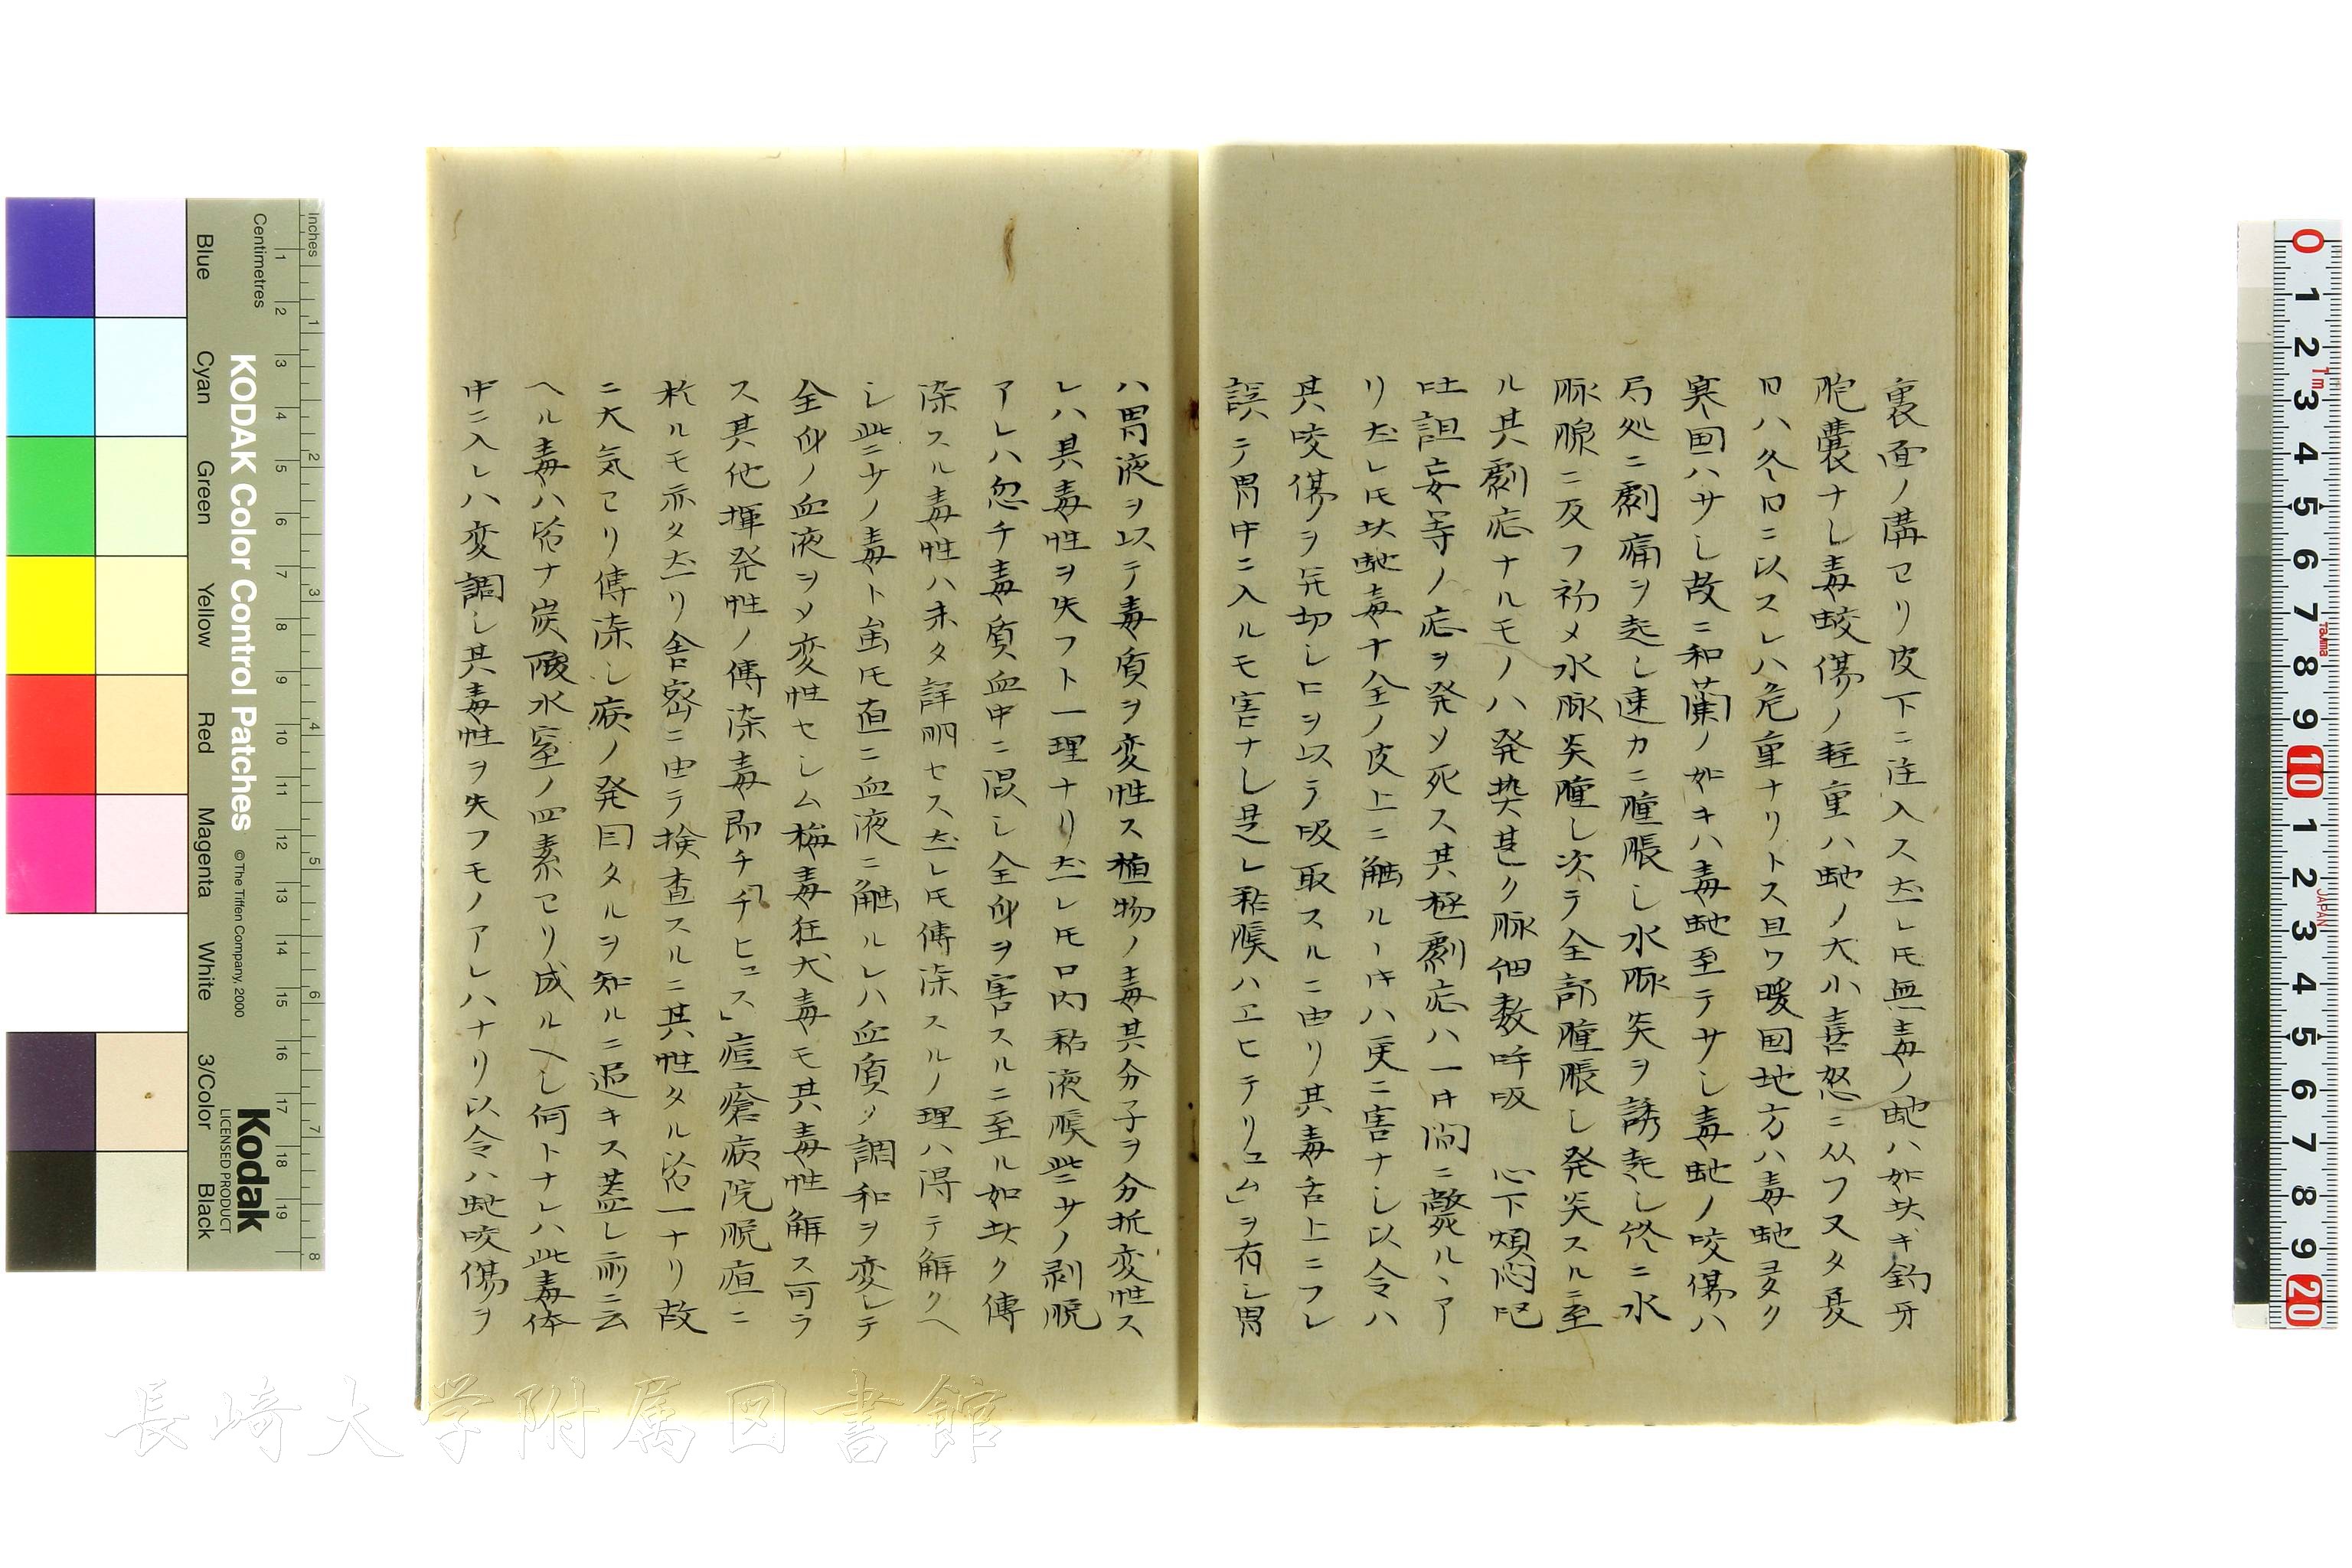 裏面ノ溝ヨリ皮下ニ注入ス𠰥レ𪜈無毒ノ虵ハ如此キ鈎牙
胞嚢ナし毒蛟傷ノ軽重ハ虵ノ大小喜怒ニ从フ又タ夏
日ハ冬日ニ以スレハ危重ナリトス且ワ暖国地方ハ毒虵夛ク
寒国ハサし故ニ和蘭ノ如キハ毒虵至テサし毒虵ノ咬傷ハ
局処ニ劇痛ヲ起し速カニ腫脹し水脈炎ヲ誘起し終ニ水
脈腺ニ及フ初メ水脈炎腫し次テ全部腫脹し発炎スルニ至
ル其劇症ナルモノハ発㷍甚タ脈細数呼吸 心下煩悶呕
吐譫妄等ノ症ヲ発ソ死ス其極劇症ハ一日間ニ斃ルヽア
リ𠰥レ𪜈此虵毒十全ノ皮上ニ触ルヽ𪜈ハ更ニ害ナし以令ハ
其咬傷ヲ切し口ヲ以テ吸取スルニ由リ其毒舌上ニフレ
誤テ胃中ニ入ルモ害ナし是レ粘膜ハエヒテリュム」ヲ有し胃
ハ胃液ヲ以テ毒質ヲ変性ス植物ノ毒其分子ヲ分拆変性ス
レハ其毒性ヲ失フト一理ナリ𠰥レ𪜈口内粘液膜些サノ剥脱
アレハ忽チ毒質血中ニ混し全身ヲ害スルニ至ル如此ク傳
染スル毒性ハ未タ詳明セス𠰥レ𪜈傳染スルノ理ハ得テ解クヘ
し些サノ毒ト虽𪜈直ニ血液ニ触ルレハ血質ノ調和ヲ変し
全身ノ血液ヲソ変性セしム梅毒狂犬毒モ其毒性解ス可ラ
ス其他揮発性ノ傳染毒即チ「チヒュス」痘瘡病院脱疽ニ
於ルモ亦タ𠰥リ舎密ニ由テ検査スルニ其性タル皆一ナリ故
ニ大気ヨリ傳染し病ノ発因タルヲ知ルニ過キス蓋し爾ニ云
ヘル毒ハ皆ナ炭酸水窒ノ四素ヨリ成ルヘし何トナレハ此毒体
中ニ入レハ変調し其毒性ヲ失フモノアレハナリ以令ハ虵咬傷ヲ
KODAK Color Control Patches
© The Tiffen Company, 2000
Kodak
LICENSED PRODUCT
Inches
Centimetres
Blue
Cyan
Green
Yellow
Red
Magenta
White
3/Color
Black
長崎大学附属図書館
Tajima
JAPAN